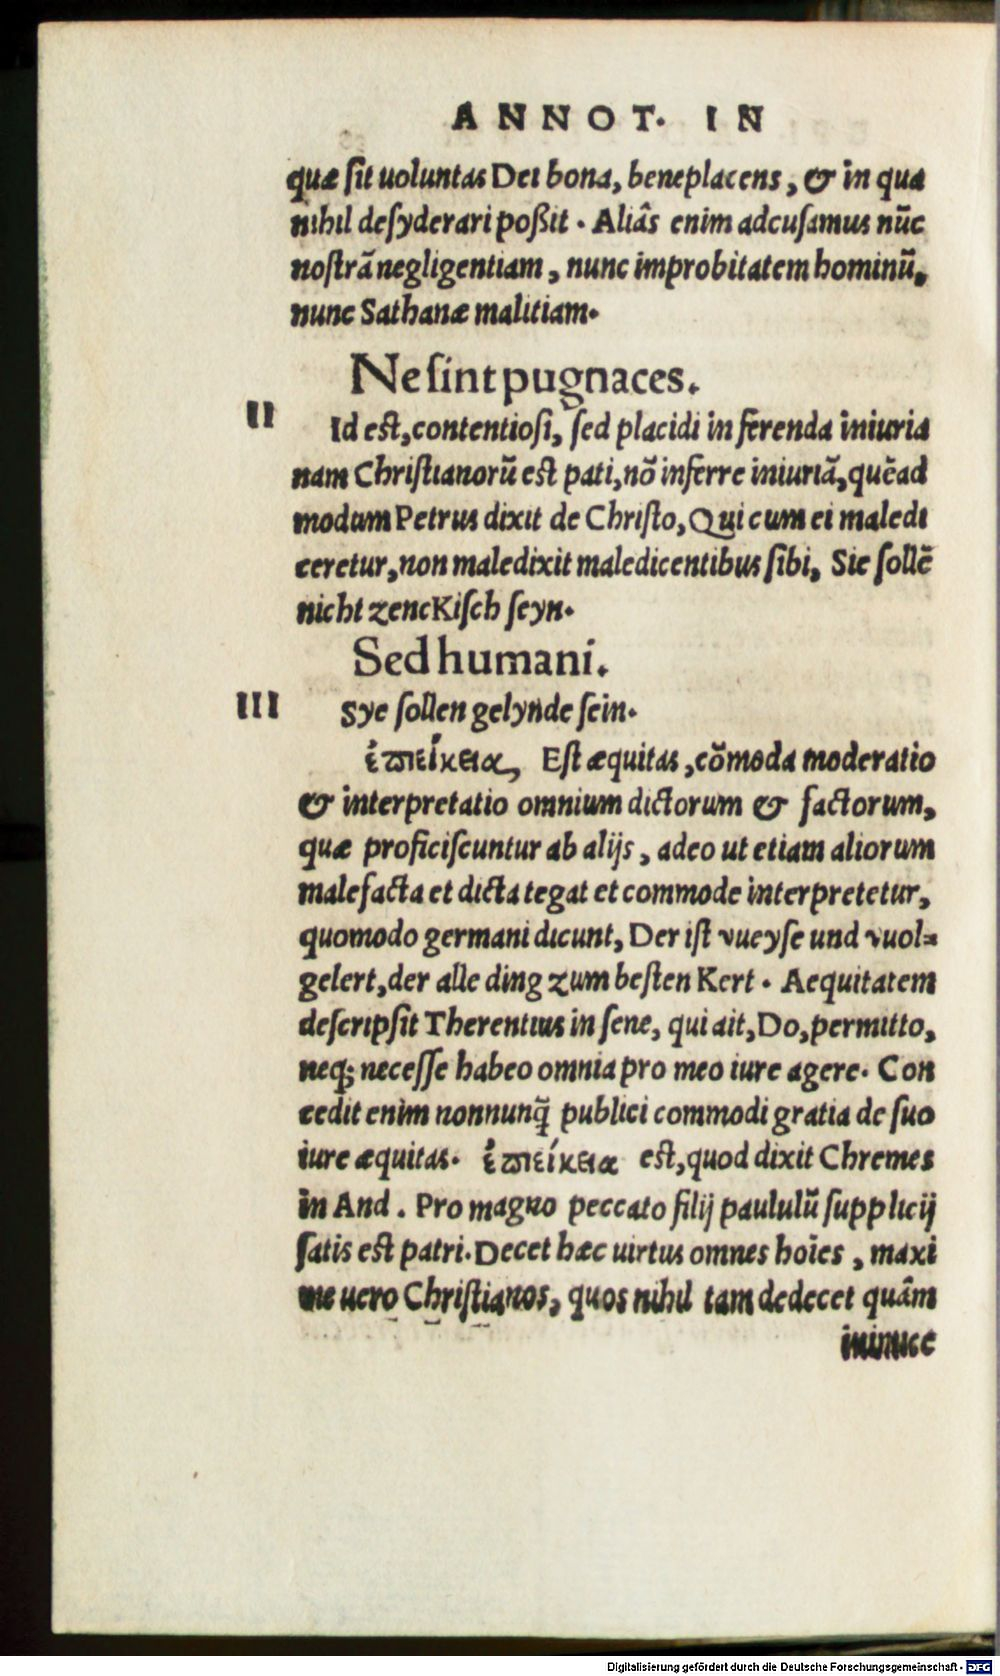 ANNOT. IN
quæ ſit uoluntas Dei bona, beneplacens, & in qua
nihil deſyderari poßit. Aliâs enim adcuſamus nūc
noſtrā negligentiam, nunc improbitatem hominū,
nunc Sathanæ malitiam.
Ne ſint pugnaces.
II
Id eſt, contentioſi, ſed placidi in ferenda iniuria
nam Chriſtianorū eſt pati, nō inferre iniuriā, quēad
modum Petrus dixit de Chriſto, Qui cum ei maledi
ceretur, non maledixit maledicentibus ſibi, Sie ſollē
nicht zencKiſch ſeyn.
Sed humani.
III
Sye ſollen gelynde ſein.
ἐπιείκεια, Eſt æquitas, cōmoda moderatio
& interpretatio omnium dictorum & factorum,
quæ proficiſcuntur ab alijs, adeo ut etiam aliorum
malefacta et dicta tegat et commode interpretetur,
quomodo germani dicunt, Der iſt vueyſe und vuol=
gelert, der alle ding zum beſten Kert. Aequitatem
deſcripſit Therentius in ſene, qui ait, Do, permitto,
neq; neceſſe habeo omnia pro meo iure agere. Con
cedit enim nonnunq̄ publici commodi gratia de ſuo
iure æquitas. ἐπιείκεια eſt, quod dixit Chremes
in And. Pro magno peccato filij paululū ſupplicij
ſatis eſt patri. Decet hæc uirtus omnes hoīes, maxi
me uero Chriſtianos, quos nihil tam dedecet quâm
inimice
Digitalisierung gefördert durch die Deutsche Forschungsgemeinschaft - DFG